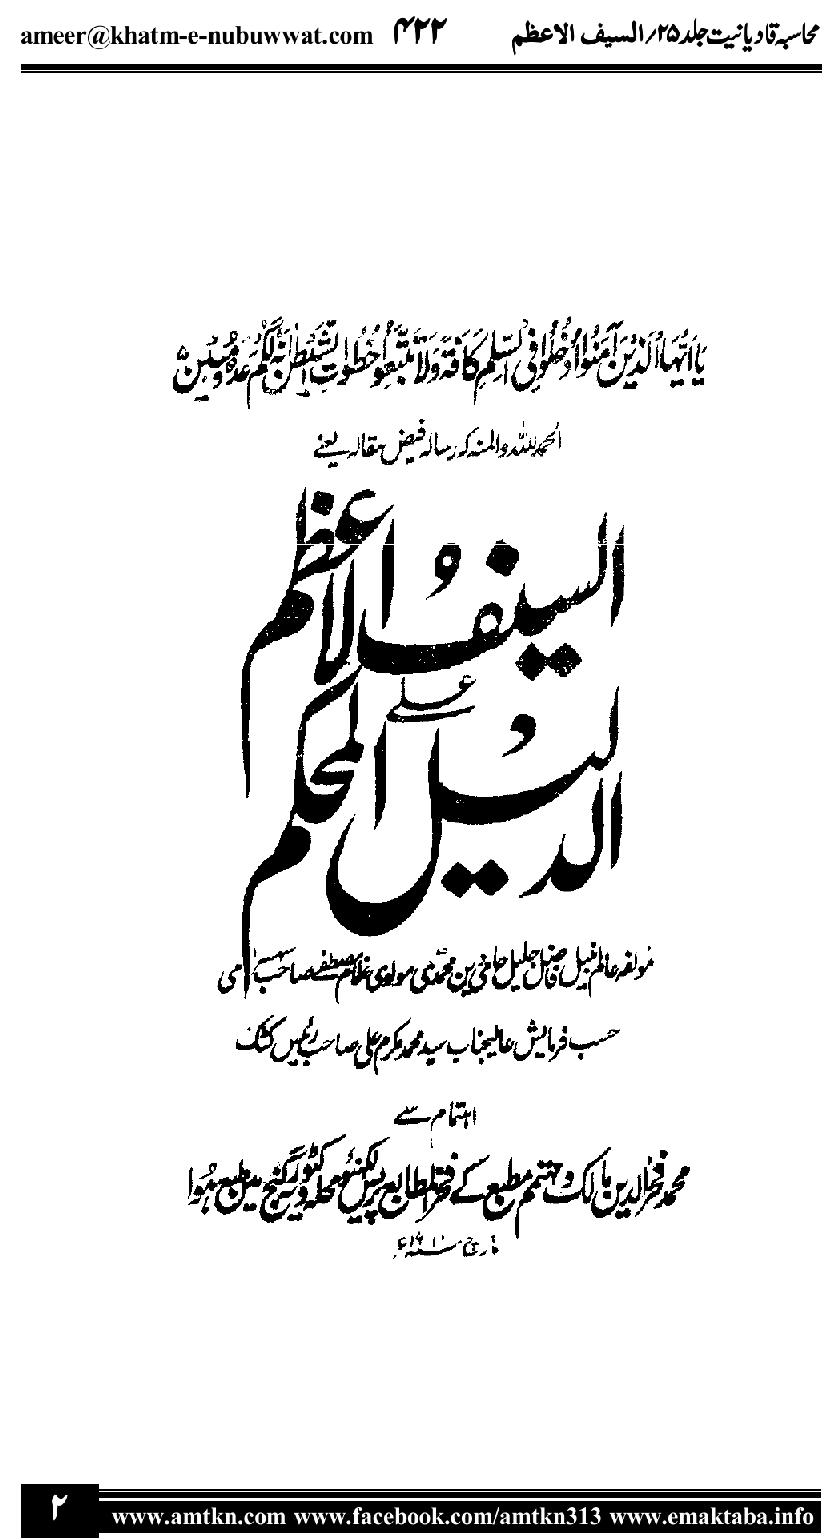 محاسبہ قادیانیت جلد ۲۵؍السیف الاعظم ۴۲۲ ameer@khatm-e-nubuwwat.com
یَا اَیُّهَا الَّذِیْنَ آمَنُوا ادْخُلُوْا فِی السِّلْمِ کَافَّةً وَّلَا تَتَّبِعُوْا خُطُوٰتِ الشَّیْطٰنِ اِنَّهٗ لَکُمْ عَدُوٌّ مُّبِیْنٌ
الحمد للہ والمنۃ کہ رسالہ فیض مقالہ یعنے
السیف الاعظم
علی
الدلیل المحکم
مولفہ عالم نبیل فاضل جلیل حامی دین محمدی مولوی غلام مصطفےٰ صاحب سہسرامی
حسب فرمایش عالیجناب سید محمد مکرم علی صاحب رئیس کٹک
اہتمام سے
محمد فخرالدین مالک و مہتمم مطبع کے فخرالمطابع پریس لکھنؤ محلہ وکٹوریہ گنج مین طبع ہوا
مارچ سنہ
۲
www.amtkn.com www.facebook.com/amtkn313 www.emaktaba.info